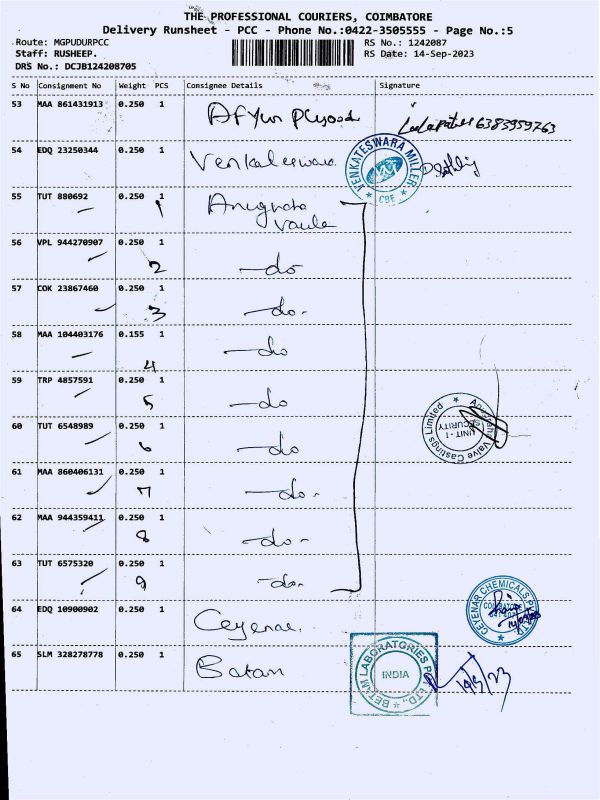 THE PROFESSIONAL COURIERS, COIMBATORE
Delivery Runsheet - PCC - Phone No.:0422-3505555 - Page No.:5
Route: MGPUDURPCC RS No.: 1242087
Staff: RUSHEEP. RS Date: 14-Sep-2023
DRS No.: DCJB124208705
S No Consignment No Weight PCS Consignee Details Signature
53 MAA 861431913 0.250 1 6383959763
54 EDQ 23250344 0.250 1 Venkateswara VENKATESWARA MILLER CBE
55 TUT 880692 0.250 1 1
56 VPL 944270907 0.250 1 2 -do
57 COK 23867460 0.250 1 3 -do-
58 MAA 104403176 0.155 1 4 -do
59 TRP 4857591 0.250 1 5 -do
60 TUT 6548989 0.250 1 6 -do Valve Castings Limited UNIT - I SECURITY
61 MAA 860406131 0.250 1 7 -do-
62 MAA 944359411 0.250 1 8 -do-
63 TUT 6575320 0.250 1 9 -do-
64 EDQ 10900902 0.250 1 Ceyenar CEYENAR CHEMICALS PVT LTD
65 SLM 328278778 0.250 1 Batan BETAM LABORATORIES PVT. LTD., INDIA